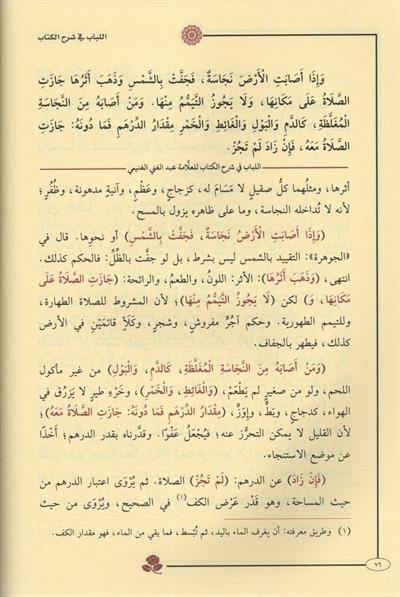 اللباب في شرح الكتاب
وَإِذَا أَصَابَتِ الْأَرْضَ نَجَاسَةٌ، فَجَفَّتْ بِالشَّمْسِ وَذَهَبَ أَثَرُهَا جَازَتِ
الصَّلَاةُ عَلَى مَكَانِهَا، وَلَا يَجُوزُ التَّيَمُّمُ مِنْهَا. وَمَنْ أَصَابَهُ مِنَ النَّجَاسَةِ
الْمُغَلَّظَةِ، كَالدَّمِ وَالْبَوْلِ وَالْغَائِطِ وَالْخَمْرِ مِقْدَارُ الدِّرْهَمِ فَمَا دُونَهُ: جَازَتِ
الصَّلَاةُ مَعَهُ، فَإِنْ زَادَ لَمْ تَجُزْ.
اللباب في شرح الكتاب للعلّامة عبد الغني الغنيمي
أثرها، ومثلُهما كلُّ صقيلٍ لا مَسَامَ له، كزجاجٍ، وعَظْمٍ، وآنيةٍ مدهونة، وظُفُرٍ؛
لأنه لا تُداخله النجاسة، وما على ظاهره يزول بالمسح.
(وَإِذَا أَصَابَتِ الْأَرْضَ نَجَاسَةٌ، فَجَفَّتْ بِالشَّمْسِ) أو نحوِها. قال في
«الجوهرة»: التقييد بالشمس ليس بشرط، بل لو جفّت بالظِّلِّ: فالحكم كذلك.
انتهى، (وَذَهَبَ أَثَرُهَا): الأثر: اللونُ، والطعمُ، والرائحة: (جَازَتِ الصَّلَاةُ عَلَى
مَكَانِهَا، وَ) لكن (لَا يَجُوزُ التَّيَمُّمُ مِنْهَا)؛ لأن المشروط للصلاة الطهارة،
وللتيمم الطهورية. وحكم آجُرٍّ مفروشٍ، وشجرٍ، وكَلَأٍ قائمَيْنِ في الأرض
كذلك، فيطهر بالجفاف.
(وَمَنْ أَصَابَهُ مِنَ النَّجَاسَةِ الْمُغَلَّظَةِ، كَالدَّمِ، وَالْبَوْلِ) من غير مأكول
اللحم، ولو من صغيرٍ لم يَطْعَمْ، (وَالْغَائِطِ، وَالْخَمْرِ)، وخَرْءِ طيرٍ لا يَزرُق في
الهواء، كدجاجٍ، وبَطٍّ، وإوَزٍّ، (مِقْدَارُ الدِّرْهَمِ فَمَا دُونَهُ: جَازَتِ الصَّلَاةُ مَعَهُ)؛
لأن القليل لا يمكن التحرُّز عنه؛ فيُجْعَلُ عَفْوًا. وقدّرناه بقدر الدرهم؛ أَخْذًا
عن موضع الاستنجاء.
(فَإِنْ زَادَ) عن الدرهم: (لَمْ تَجُزْ) الصلاة. ثم يُرْوَى اعتبار الدرهم من
حيث المساحة، وهو قَدْر عَرْض الكف(١) في الصحيح، ويُرْوَى من حيث
(١) وطريق معرفته: أن يغرف الماء باليد، ثم تُبْسط، فما بقي من الماء، فهو مقدار الكف.
٧٦